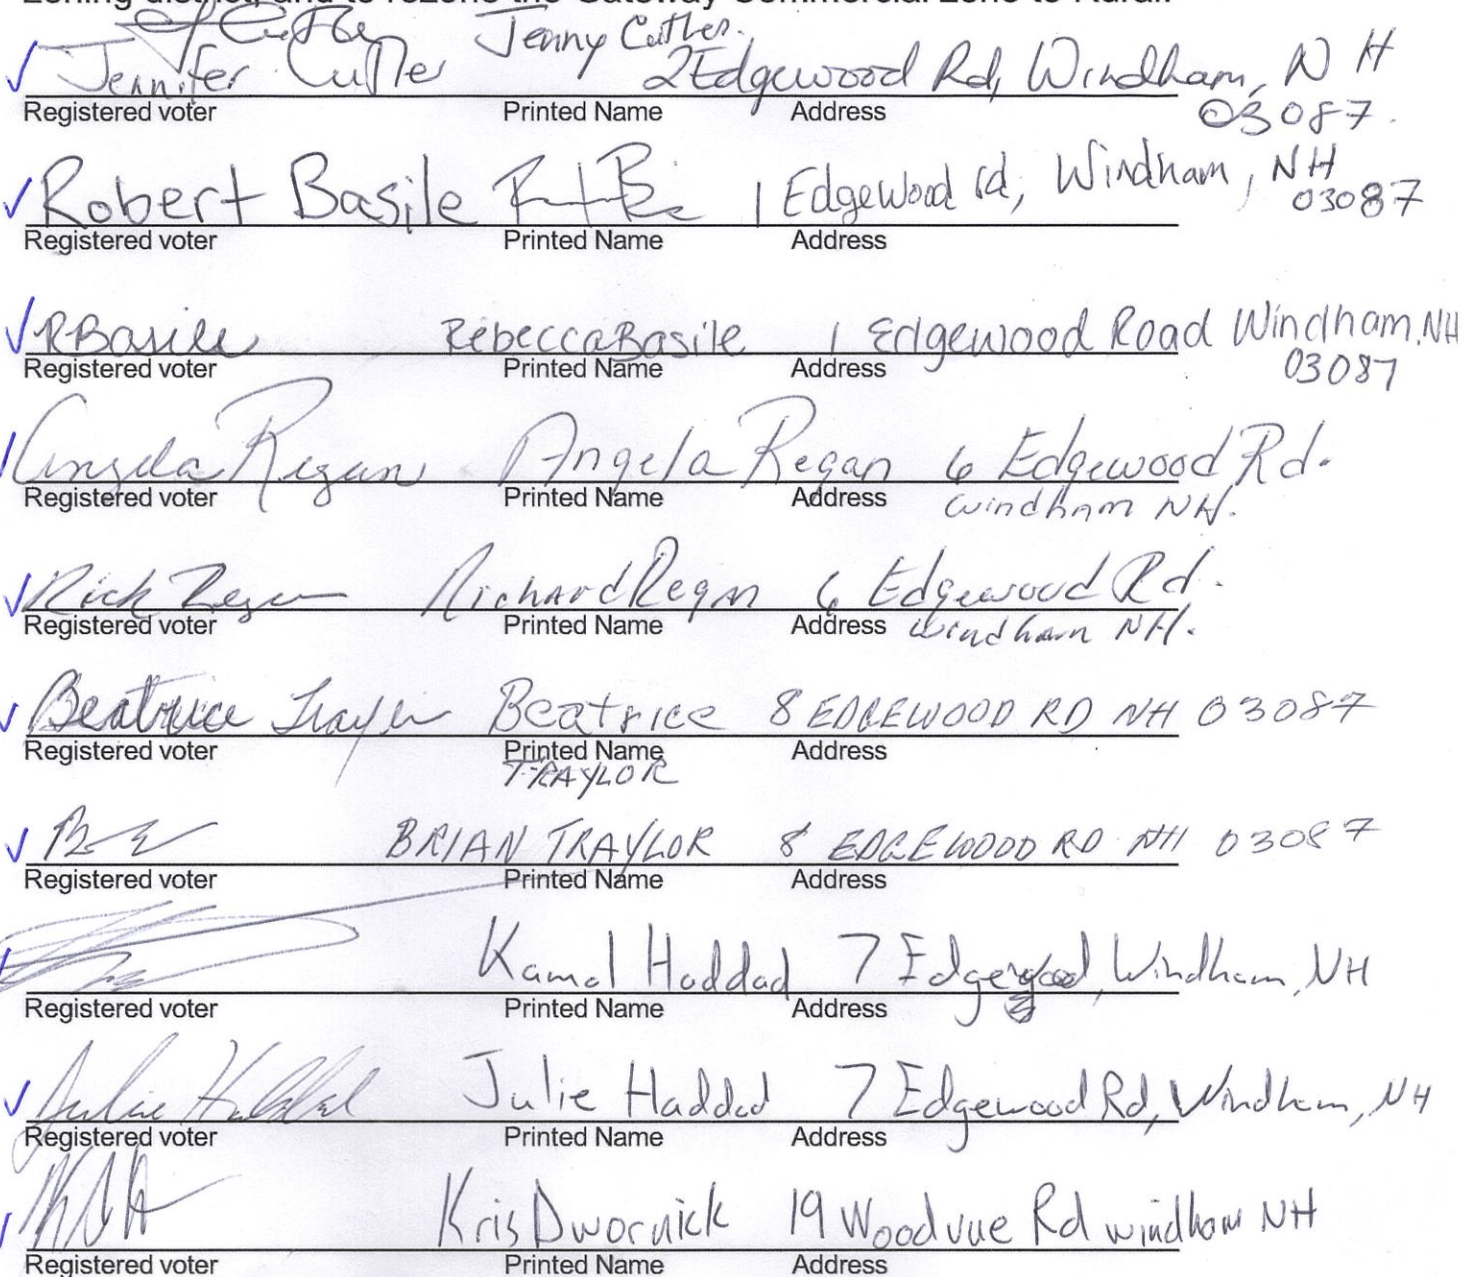 zoning district, and to rezone the Gateway Commercial zone to Rural.
J Cutler Jenny Cutler.
✓ Jennifer Cutler 2 Edgewood Rd, Windham, NH
Registered voter Printed Name Address 03087.
✓ Robert Basile 1 Edgewood rd, Windham, NH
03087
Registered voter Printed Name Address
✓ RBasile Rebecca Basile 1 Edgewood Road Windham, NH
Registered voter Printed Name Address 03087
✓ Angela Regan Angela Regan 6 Edgewood Rd.
Registered voter Printed Name Address Windham NH.
✓ Rick Regan Richard Regan 6 Edgewood Rd.
Registered voter Printed Name Address Windham NH.
✓ Beatrice Traylor Beatrice 8 EDGEWOOD RD NH 03087
Registered voter Printed Name Address
TRAYLOR
✓ BRIAN TRAYLOR 8 EDGEWOOD RD NH 03087
Registered voter Printed Name Address
✓ Kamal Haddad 7 Edgewood, Windham, NH
Registered voter Printed Name Address
✓ Julie Haddad Julie Haddad 7 Edgewood Rd, Windham, NH
Registered voter Printed Name Address
✓ Kris Dwornick 19 Woodvue Rd windham NH
Registered voter Printed Name Address